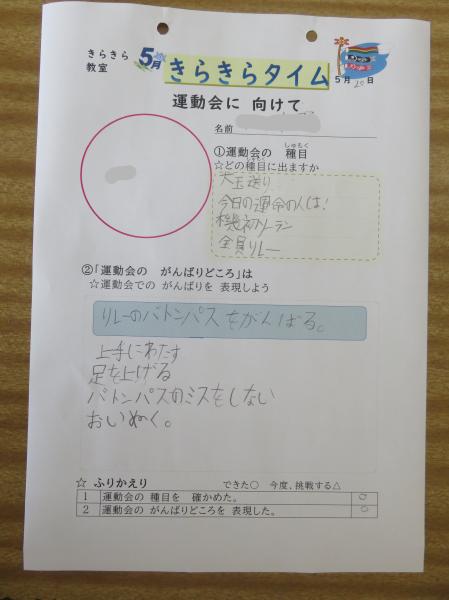 きらきら
教室
5月
きらきらタイム
5月20日
運動会に 向けて
名前
①運動会の 種目
しゅもく
☆どの種目に出ますか
大玉送り
今日の運命の人は!
ソーラン
全員リレー
②「運動会の がんばりどころ」は
☆運動会での がんばりを 表現しよう
リレーのバトンパスをがんばる。
上手にわたす
足を上げる
バトンパスのミスをしない
おいぬく。
☆ ふりかえり
できた○ 今度、挑戦する△
1 運動会の 種目を 確かめた。 ○
2 運動会の がんばりどころを 表現した。 ○